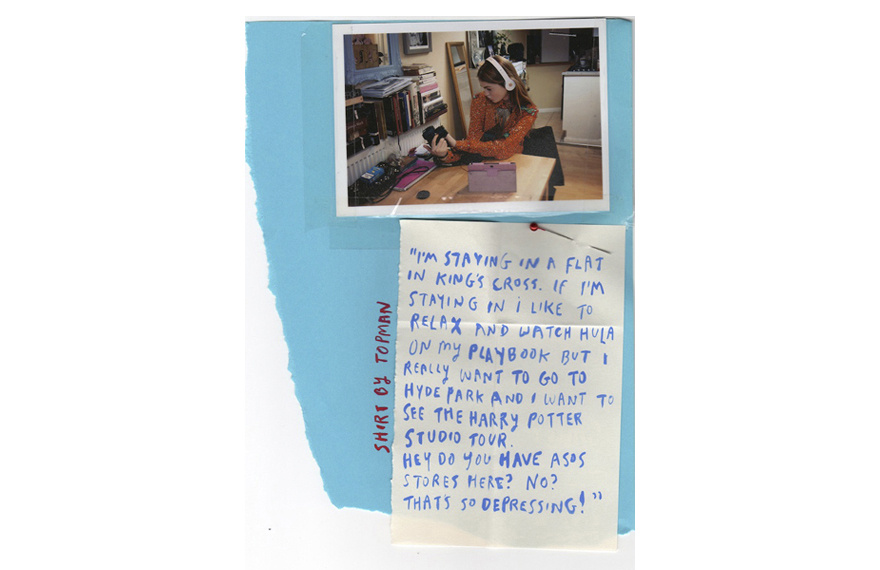 "I'M STAYING IN A FLAT
IN KING'S CROSS. IF I'M
STAYING IN i LIKE TO
RELAX AND WATCH HULA
ON MY PLAYBOOK BUT I
REALLY WANT TO GO TO
HYDE PARK AND I WANT TO
SEE THE HARRY POTTER
STUDIO TOUR.
HEY DO YOU HAVE ASOS
STORES HERE? NO?
THAT'S SO DEPRESSING!"
SHIRT BY TOPMAN